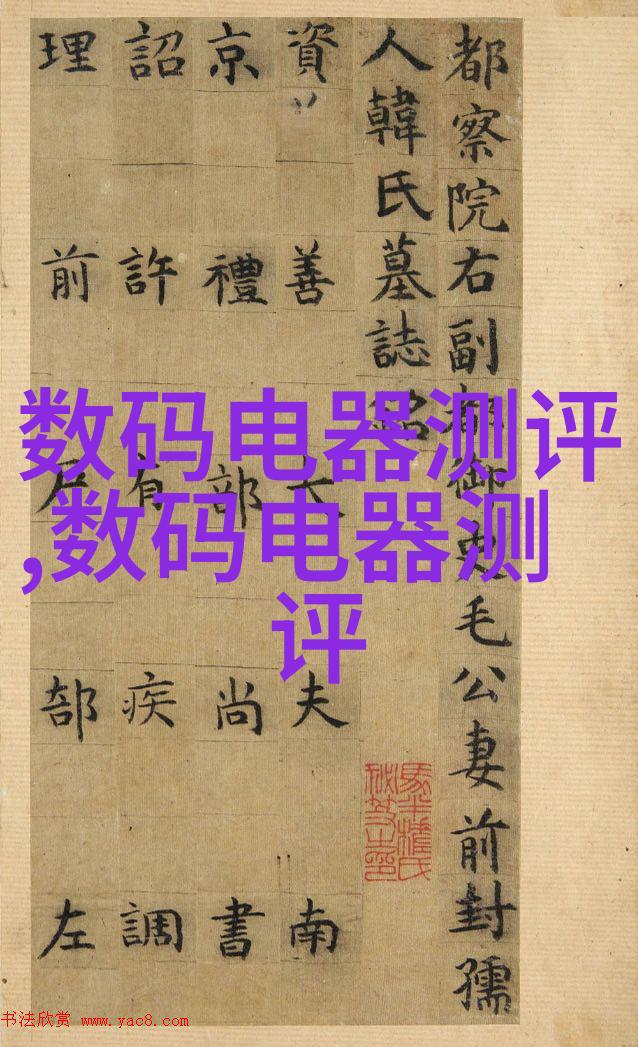 都察院右副都御史毛公妻前封孺
人韓氏墓誌銘
資善大夫南
京禮部尚書
詔許有疾調
理前戶部左
数码电器测评
,数码电器测
评
书法欣赏 www.yac8.com